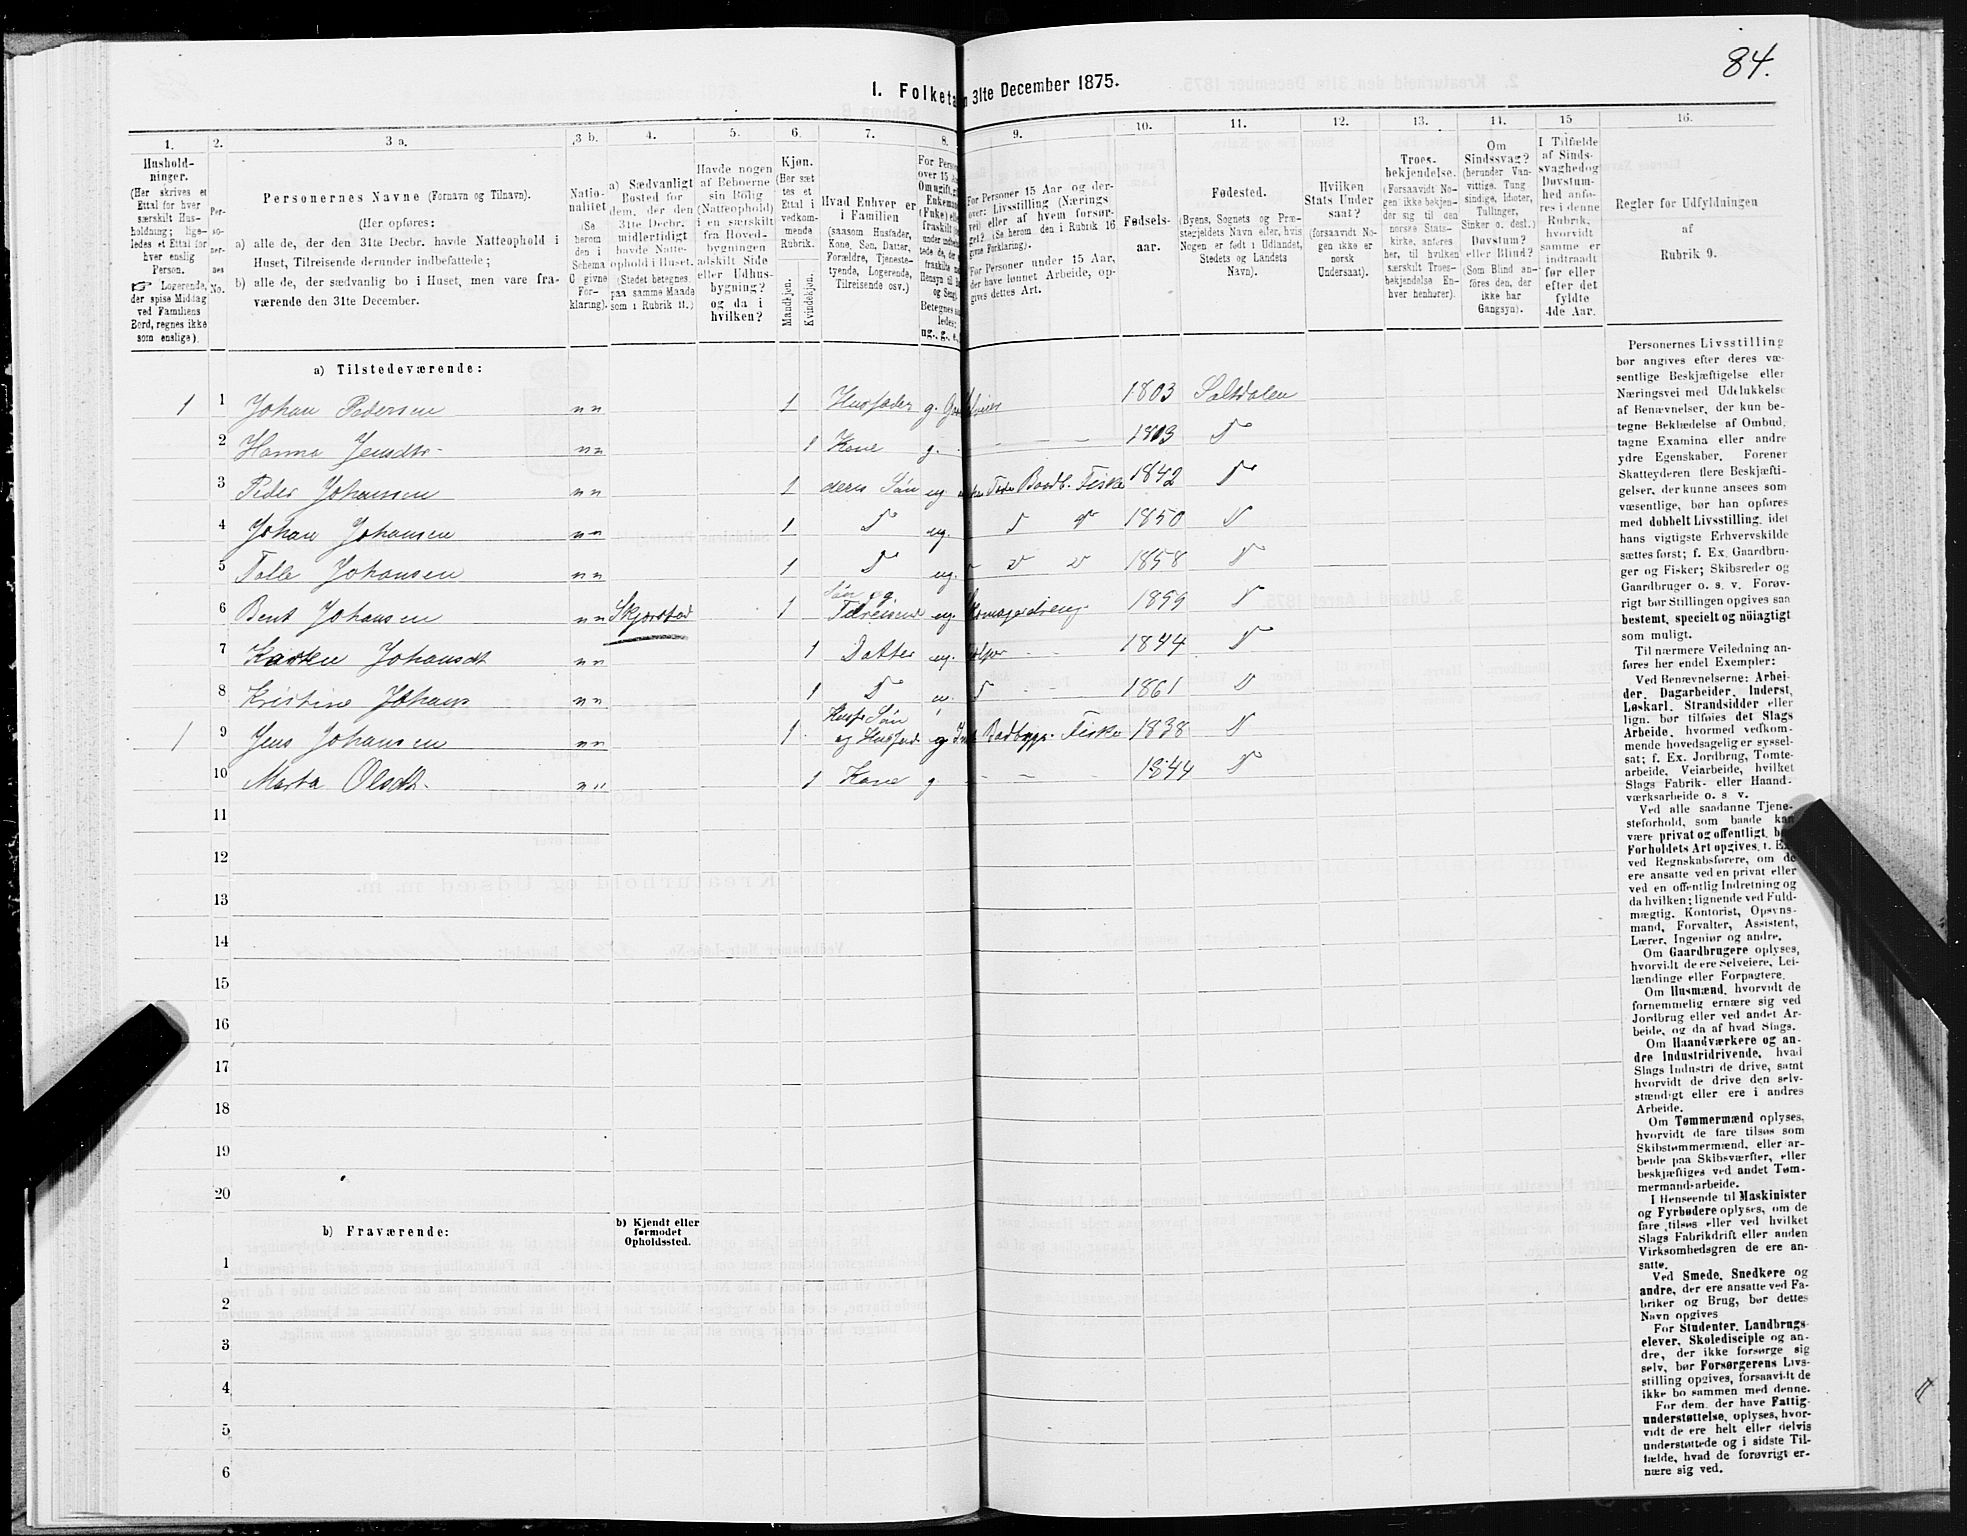 84.
I. Folketa n 31te December 1875.
1. 2. 3 a. 3 b. 4. 5. 6. 7. 8. 9. 10. 11. 12. 13. 14. 15 16.
Hushold-
ninger.
(Her skrives et
Ettal for hver
særskilt Hus-
holdning; lige-
ledes et Ettal for
hver enslig
Person.
☞ Logerende,
der spise Middag
ved Familiens
Bord, regnes ikke
som enslige).
Per-
so-
ner-
nes
No.
Personernes Navne (Fornavn og Tilnavn).
(Her opføres:
a) alle de, der den 31te Decbr. havde Natteophold i
Huset, Tilreisende derunder indbefattede;
b) alle de, der sædvanlig bo i Huset, men vare fra-
værende den 31te December.
Natio-
nalitet
(Se
herom
den i
Schema
C givne
For-
klaring).
a) Sædvanligt
Bosted for
dem, der den
31te Decbr.
midlertidigt
havde Natte-
ophold i Huset.
(Stedet betegnes
paa samme Maade
som i Rubrik 11.)
Havde nogen
af Beboerne
sin Bolig
(Natteophold)
i en særskilt
fra Hoved-
bygningen
adskilt Side
eller Udhus-
bygning?
og da i
hvilken?
Kjøn.
(Her sæt
tes et
Ettal i
vedkom-
mende
Rubrik.
Mandkjøn.
Kvindekjøn.
Hvad Enhver er
i Familien
(saasom Husfader,
Kone, Søn, Datter,
Forældre, Tjeneste-
tyende, Logerende,
Tilreisende osv.)
For Personer 15 Aar og der-
over: Livsstilling (Nærings
vei) eller af hvem forsør-
get? (Se herom den i Rubrik 16
givne Forklaring).
For Personer under 15 Aar,
der have lønnet Arbeide, op-
gives dettes Art.
Fødsels-
aar.
Fødested.
(Byens, Sognets og Præ-
stegjeldets Navn eller, hvis
Nogen er født i Udlandet,
Stedets og Landets
Navn).
Hvilken
Stats Under
saat?
(forsaavidt No-
gen ikke er
norsk
Undersaat).
Troes-
bekjendelse.
(Forsaavidt No-
gen ikke bekjen-
der sig til den
norske Stats-
kirke, anføres
her, til hvilken
særskilt Troes-
bekjendelse En-
hver henhører).
Om
Sindssvag?
(herunder Van-
vittige, Tung
sindige, Idioter,
Tullinger,
Sinker o. desl.)
Døvstum?
eller Blind?
(Som Blind an-
føres den, der
ikke har
Gangsyn).
I Tilfælde
af Sinds-
svaghed og
Døvstum-
hed anfø-
res i denne
Rubrik,
hvorvidt
samme er
indtraadt
før eller
efter det
fyldte
4de Aar.
Regler for Udfyldningen
af
Rubrik 9.
a) Tilstedeværende:
1 1 Johan Pedersen nn 1 Husfader g. 1803 Saltdalen
2 Hanna Jensdtr nn 1 Kone g. 1813 D
3 Peder Johansen nn 1 deres Søn ug. Baadb. Fisker 1842 D
4 Johan Johansen nn 1 D ug. D 1850 D
5 Johansen nn 1 D ug. 1858 D
Søn og
6 Bent Johansen nn Skjørstad 1 Tilreisend ug. 1859 D
7 Johansdt nn 1 Datter ug. 1844 D
8 Kristine Johans nn 1 D u. D 1861 D
Husf. Søn
1 9 Jens Johansen nn 1 og Husfad g. Fisker 1838 D
10 Marta Olsdt. nn 1 Kone g. 1844 D
11
12
13
14
15
16
17
18
19
20
b) Fraværende:
b) Kjendt eller
formodet
Opholdssted.
1
2
3
4
5
6
Personernes Livsstilling
bør angives efter deres væ-
sentlige Beskjæftigelse eller
Næringsvei med Udelukkelse
af Benævnelser, der kun be-
tegne Beklædelse af Ombud,
tagne Examina eller andre
ydre Egenskaber. Forener
Skatteyderen flere Beskjæfti-
gelser, der kunne ansees som
væsentlige, bør han opføres
med dobbelt Livsstilling, idet
hans vigtigste Erhvervskilde
sættes først; f. Ex. Gaardbru-
ger og Fisker; Skibsreder og
Gaardbruger o. s. v. Forøv-
rigt bør Stillingen opgives saa
bestemt, specielt og nøiagtigt
som muligt.
Til nærmere Veiledning an-
føres her endel Exempler:
Ved Benævnelserne: Arbei-
der, Dagarbeider, Inderst,
Løskarl, Strandsidder eller
lign. bør tilføies det Slags
Arbeide, hvormed vedkom-
mende hovedsagelig er syssel-
sat; f. Ex. Jordbrug, Tomte-
arbeide, Veiarbeide, hvilket
Slags Fabrik- eller Haand-
værksarbeide o. s. v.
Ved alle saadanne Tjene-
steforhold, som baade kan
være privat og offentligt, bør
Forholdets Art opgives, f. Ex.
ved Regnskabsførere, om de
ere ansatte ved en privat eller
ved en offentlig Indretning og
da hvilken; lignende ved Fuld-
mægtig, Kontorist, Opsyns-
mand, Forvalter, Assistent,
Lærer, Ingeniør og andre.
Om Gaardbrugere oplyses,
hvorvidt de ere Selveiere, Lei-
lændinge eller Forpagtere.
Om Husmænd, hvorvidt de
fornemmelig ernære sig ved
Jordbrug eller ved andet Ar-
beide, og da af hvad Slags.
Om Haandværkere og an-
dre Industridrivende, hvad
Slags Industri de drive, samt
hvorvidt de drive den selv-
stændigt eller ere i andres
Arbeide.
Om Tømmermænd oplyses,
hvorvidt de fare tilsøs som
Skibstømmermænd, eller ar-
beide paa Skibsværfter, eller
beskjæftiges ved andet Tøm-
mermand-arbeide.
I Henseende til Maskinister
og Fyrbødere oplyses, om de
fare tilsøs eller ved hvilket
Slags Fabrikdrift eller anden
Virksomhedsgren de ere an-
satte.
Ved Smede, Snedkere og
andre, der ere ansatte ved Fa-
briker og Brug, bør dettes
Navn opgives
For Studenter, Landbrugs-
elever, Skoledisciple og an-
dre, der ikke forsørge sig
selv, bør Forsørgerens Livs-
stilling opgives, forsaavidt de
ikke bo sammen med denne.
For dem, der have Fattig-
understøttelse, oplyses, hvor-
vidt de ere helt eller delvis
understøttede og i sidste Til-
fælde, hvad de forøvrigt er-
nære sig ved.